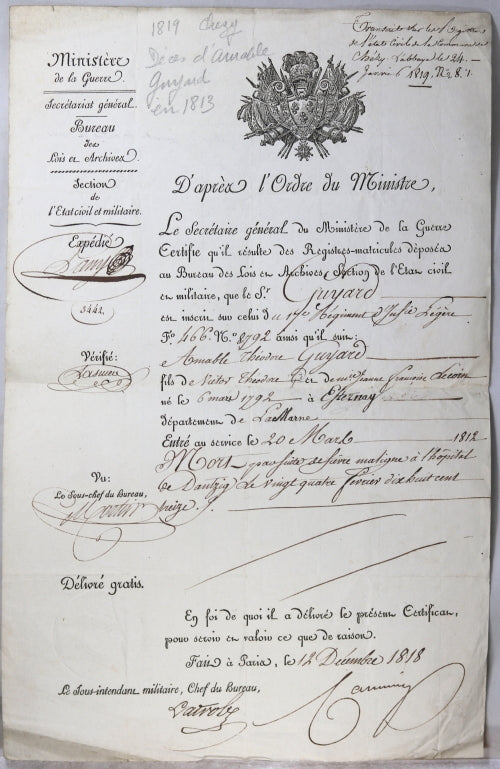 1819 Chezy
Décès d'Amable
Guyard
en 1813
Transcrit sur les Registres
de l'état Civil de la Commune de
Chézy L'abbaye le 24
Janvier 1819. N.º 8.
Ministère
de la Guerre.
Secrétariat général.
Bureau
des
Lois et Archives.
Section
de
l'Etat civil et militaire.
Expédié
5442.
Vérifié:
Vu:
Le Sous-chef du Bureau,
Martin
Délivré gratis.
D'après l'Ordre du Ministre,
Le Secrétaire général du Ministère de la Guerre
Certifie qu'il résulte des Registres-matricules déposés
au Bureau des Lois et Archives Section de l'Etat civil
et militaire, que le S.r Guyard
est inscrit sur celui du 17e Régiment d'Inf.ie Légère
F.o 466. N.o 8792 ainsi qu'il suit
Amable Théodore Guyard
fils de Victor Théodore et de Jeanne Françoise Lecoin
né le 6 mars 1792 à Esternay
département de La Marne
Entré au service le 20 Mars 1812
Mort par suite de fièvre maligne à l'hôpital
de Dantzig le vingt quatre février dix huit cent
treize.
En foi de quoi il a délivré le présent Certificat,
pour servir et valoir ce que de raison.
Fait à Paris, le 12 Décembre 1818
Le Sous-intendant militaire, Chef du Bureau,